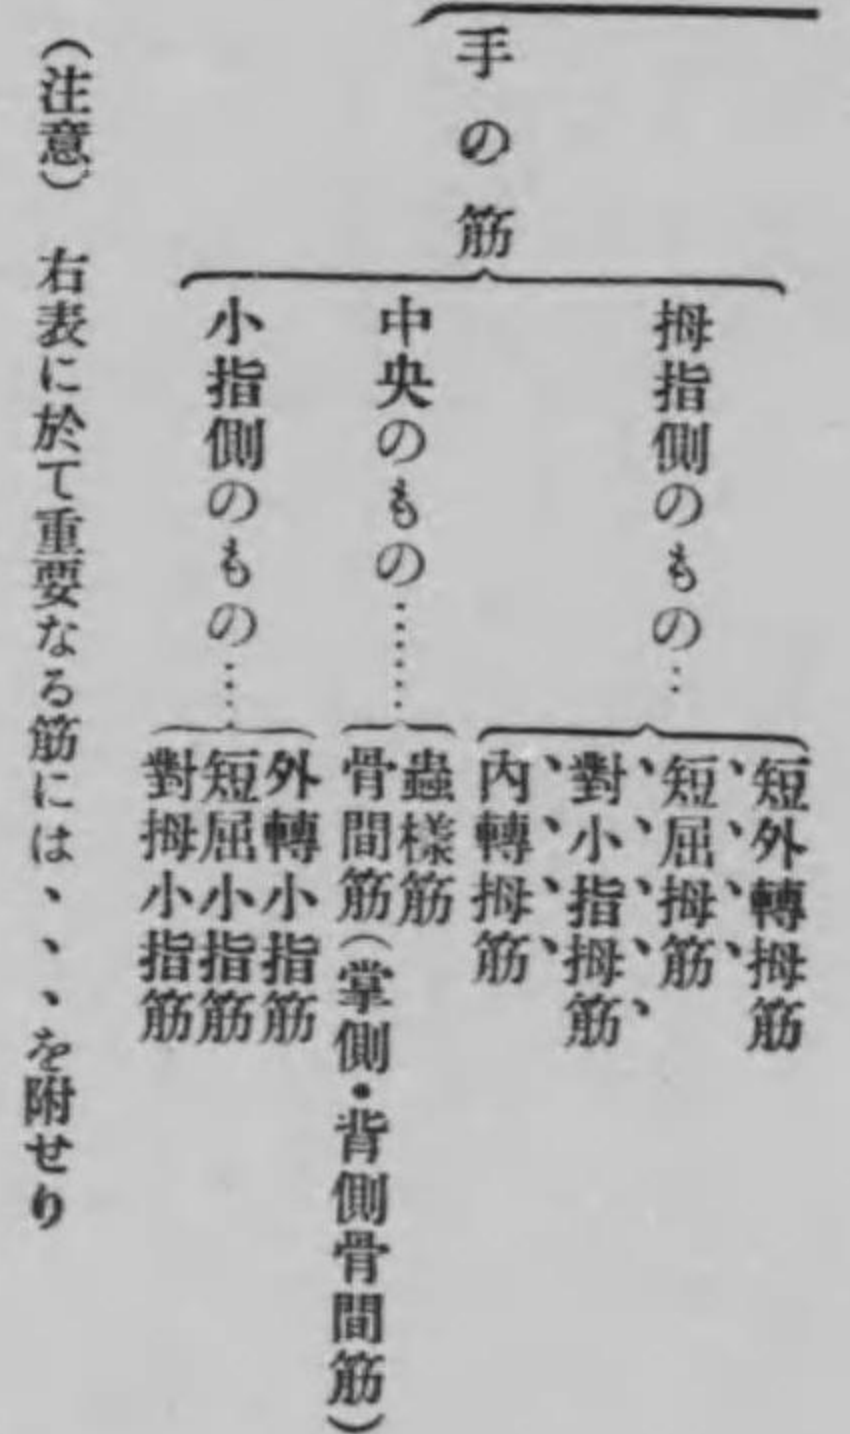 手の筋
拇指側のもの…
短外轉拇筋
短屈拇筋
對小指拇筋
內轉拇筋
中央のもの……
蟲樣筋
骨間筋(掌側・背側骨間筋)
小指側のもの…
外轉小指筋
短屈小指筋
對拇小指筋
(注意) 右表に於て重要なる筋には、、、を附せり